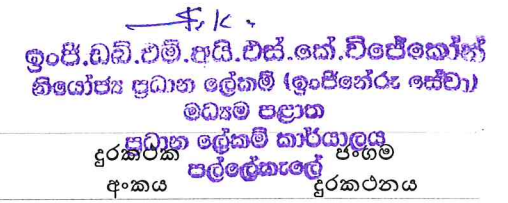 ඉංජි.ඩබ්.එම්.අයි.එස්.කේ.විජේකෝන්
නියෝජ්‍ය ප්‍රධාන ලේකම් (ඉංජිනේරු සේවා)
මධ්‍යම පළාත
ප්‍රධාන ලේකම් කාර්යාලය
පල්ලේකැලේ
දුරකථන ජංගම
අංකය දුරකථනය